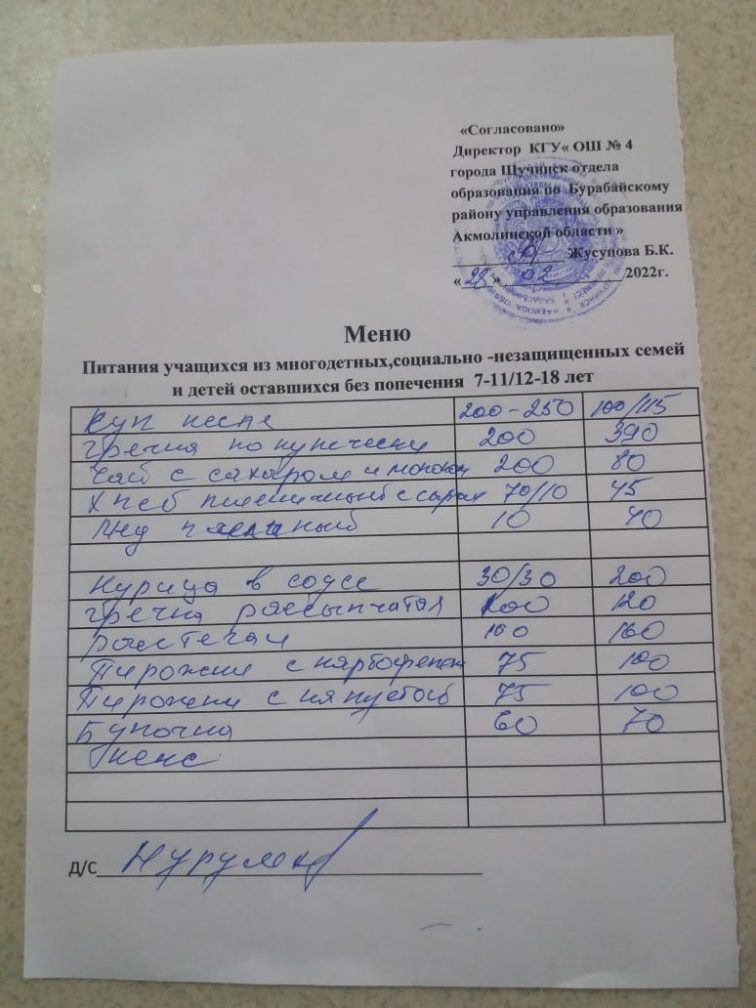 «Согласовано»
Директор КГУ« ОШ № 4
города Щучинск отдела
образования по Бурабайскому
району управления образования
Акмолинской области »
Жусупова Б.К.
«28» 02 2022г.
Меню
Питания учащихся из многодетных,социально -незащищенных семей
и детей оставшихся без попечения 7-11/12-18 лет
Суп кеспе 200-250 100/115
Гречка по купечески 200 390
Чай с сахаром и молоком 200 80
Хлеб пшеничный с сыром 70/10 45
10 40
Курица в соусе 30/30 200
Гречка рассыпчатая 100 120
Расстегаи 100 160
Пирожки с картофелем 75 100
Пирожки с капустой 75 100
Булочка 60 70
Кекс
Д/С